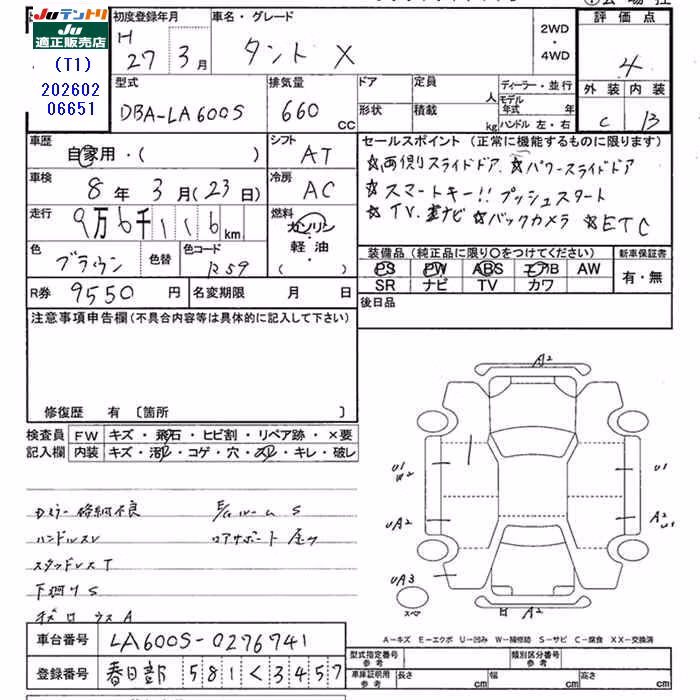 Juテントリ
Ju
適正販売店
(T1)
202602
06651
初度登録年月 H 27 3月
車名・グレード タント X
2WD・4WD
評価点 4
外装 内装
C B
型式 DBA-LA600S
排気量 660 cc
ドア
形状
定員 人
積載 kg
ディーラー・並行
モデル年式 年
ハンドル 左・右
車歴 自家用・( )
シフト AT
車検 8年 3月(23日)
冷房 AC
走行 9万6千116km
燃料 ガソリン 軽油 ( )
色 ブラウン 色替
色コード R59
R券 9550円
名変期限 月 日
セールスポイント (正常に機能するものに限ります)
☆両側りスライドドア ☆パワースライドドア
☆スマートキー!! プッシュスタート
☆TV ナビ ☆バックカメラ ☆ETC
装備品(純正品に限り○をつけてください)
PS PW ABS エアB AW
SR ナビ TV カワ
新車保証書
有・無
後日品
注意事項申告欄(不具合内容等は具体的に記入して下さい)
修復歴 有 〔箇所 〕
検査員記入欄
FW キズ・飛石・ヒビ割・リペア跡・×要
内装 キズ・汚レ・コゲ・穴・スレ・キレ・破レ
Dミラー格納不良
ハンドルスレ
スタッドレスT
下廻りS
E/gルームS
A2
U1
W2
UA2
UA3
スペア
U1
A2
U1
A2
A-キズ E-エクボ U-凹み W-補修跡 S-サビ C-腐食 XX-交換済
車台番号 LA600S-0276741
登録番号 春日部 581 く 3457
型式指定番号 参考
類別区分番号 参考
車庫証明用 参考
長さ cm
幅 cm
高さ cm